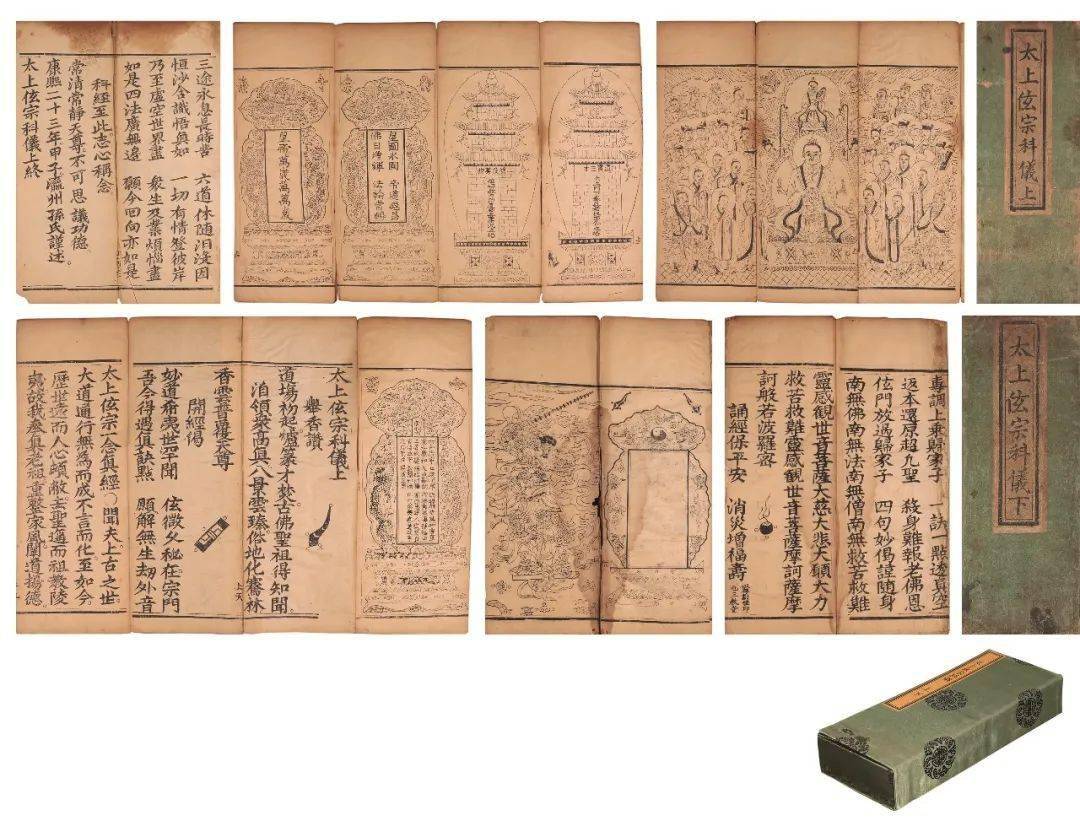 三途永息長時苦 六道休隨汩沒因
恒沙含識悟真如 一切有情登彼岸
乃至虛空世界盡 衆生及業煩惱盡
如是四法廣無邉 願今回向亦如是
科經至此志心稱念
常清常靜天尊不可思議功德
康熙二十三年甲子瀛州孫氏謹述
太上伭宗科儀上終
皇圖永固 帝道遐昌
佛日增輝 法輪常轉
皇帝萬歲萬萬歲
太上伭宗科儀上
太上伭宗科儀上
舉香讚
道場初起爐篆才爇古佛聖祖得知聞
洎領衆高真八景雲臻俗地化騫林
香雲普覆天尊
開經偈
妙道希夷世罕聞 伭微久秘在宗門
吾今得遇真訣點 願解無生劫外音
太上伭宗一念真經〇聞夫上古之世
大道通行無為而成不言而化至如今
歷世遠而人心頗敝去聖遙而祖教陵
故我叅真老祖重整家風闡道揚德
專調上乗歸家子 訣一點透真空
返本還原超九聖 殺身難報老佛恩
伭門放過歸家子 四句妙偈謹隨身
南無佛南無法南無僧南無救苦救難
靈感觀世音菩薩大慈大悲大願大力
救苦救難靈感觀世音菩薩摩訶薩摩
訶般若波羅蜜
誦經保平安 消灾增福壽
太上伭宗科儀下